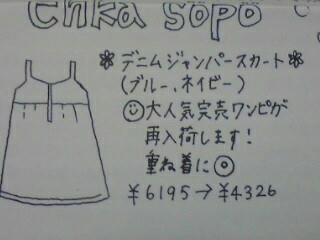 enka sopo
❀デニムジャンパースカート❀
(ブルー、ネイビー)
大人気完売ワンピが
再入荷します!
重ね着に◎
¥6195→¥4326